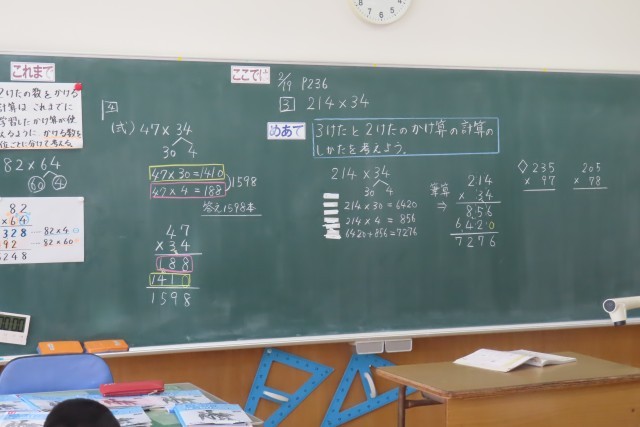 これまで
2けたの数をかける
計算は これまでに
学習したかけ算が使
えるように かける数を
位ごとに分けて考える
82×64
60 4
82
×64
328 ― 82×4
492 ― 82×60
5248
4
(式) 47×34
30 4
47×30=1410
47×4=188
1598
答え1598本
47
×34
188
1410
1598
ここでは
2/19 P236
3 214×34
めあて
3けたと2けたのかけ算の計算の
しかたを考えよう。
214×34
30 4
214×30=6420
214×4=856
6420+856=7276
筆算
⇒
214
×34
856
6420
7276
235
×97
205
×78
8 7 6 5 4